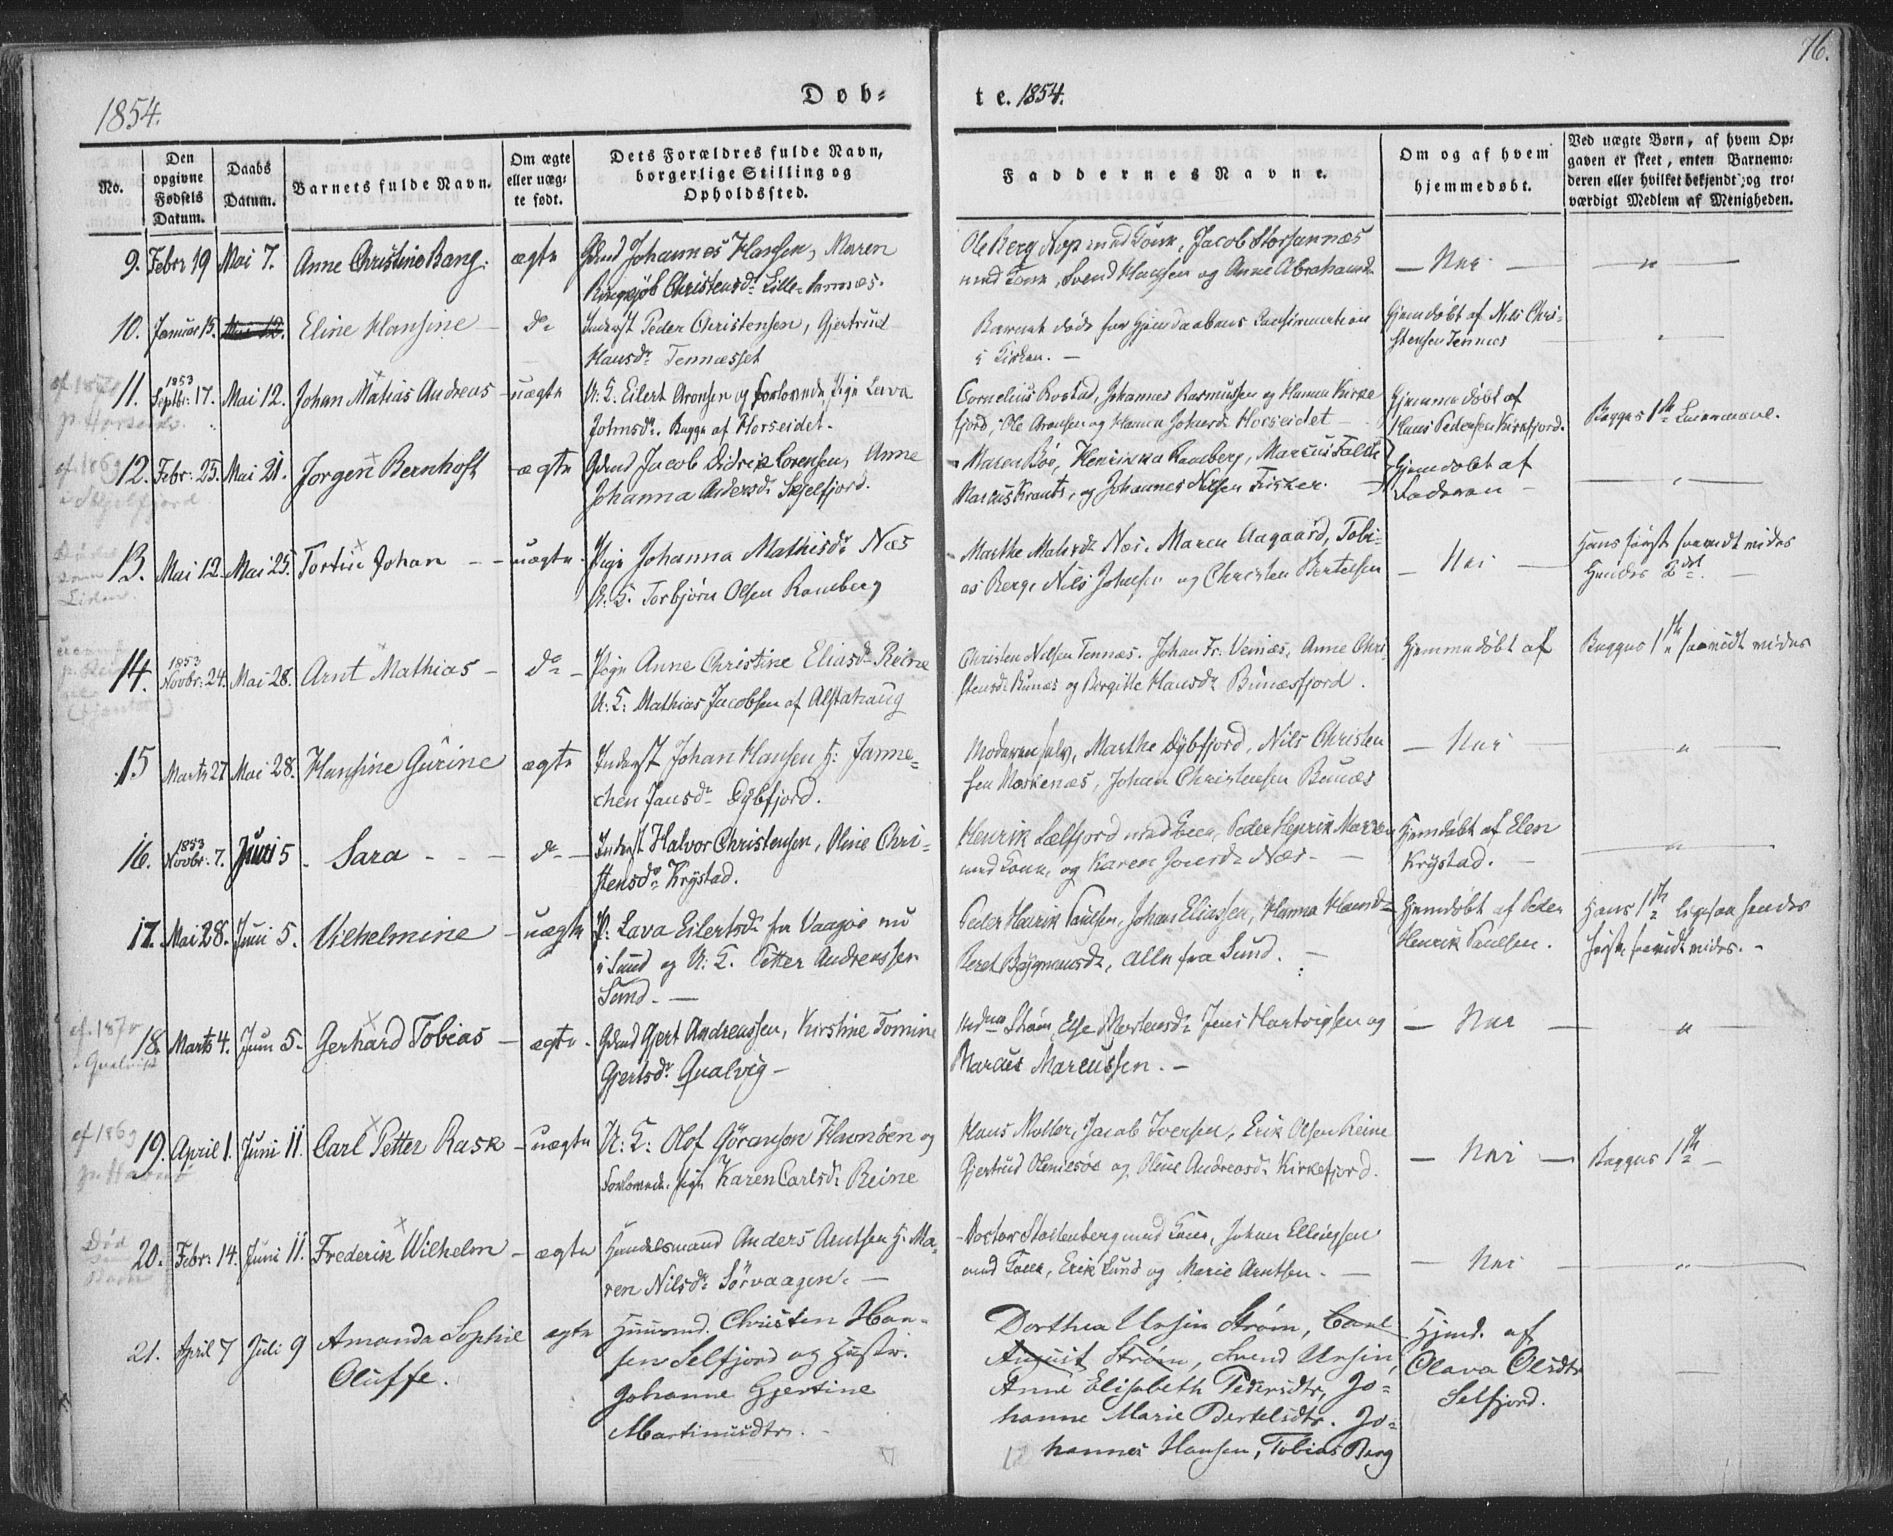 76.
1854.
Døb-
te. 1854.
No.
Den opgivne Fødsels Datum.
Daabs Datum.
Barnets fulde Navn.
Om ægte eller uægte født.
Dets Forældres fulde Navn, borgerlige Stilling og Opholdssted.
Faddernes Navne.
Om og af hvem hjemmedøbt.
Ved uægte Børn, af hvem Opgaven er skeet, enten Barnemoderen eller hvilket bekjendt og troværdigt Medlem af Menigheden.
9. Febr 19 Mai 7. Anne Christine Bang. ægte Gdmd Johannes Hansen, Maren
Christensd. Lille
Ole Berg Nap med Kone, Jacob
med Kone, Svend Hansen og Anne Abrahamsd.
— Nei — "
10. Januar 15. Mai 12. Eline Hansine — do Inderst Peder Christensen, Gjertrud
Hansdr Tennæsset
Barnet døde før Hjemdaabens
i Kirken. —
Hjemdøbt af Nils Christensen Tennes "
11. 1853 Septbr: 17. Mai 12. Johan Matias Andreas — uægte U: K. Eilert Aronsen og forlovede Pige Lava
Johnsdr. Begge af Horseidet.
Cornelius Rostad, Johannes Rasmussen og Hanna Kirkefjord, Ole Aronsen og Hanna Johnsdr Horseidet —
Hjemmedøbt af
Hans Pedersen Kirkfjord.
Begges 1ste Leiermaal.
12. Febr: 25. Mai 21. Jørgen Bernhoft — ægte Gdmd Jacob Didrik Lorensen, Anne
Johanna Andersdr Skjelfjord.
Maren Bøe, Henrikka Ramberg, Marcus Falch
Marcus Krantz, og Johannes Nilsen Fisker. —
Hjemdøbt af
Faderen —
— " —
13. Mai 12. Mai 25. Tortin Johan — uægte Pige Johanna Mathisdr Næs
U: K. Torbjörn Olsen Ramberg
Marthe Næs, Maren Aagaard, Tobias Berg, Nils Johnsen og Christen Bertelsen
— Nei —
Hans første saavidt vides
Hendes 2det. —
14. 1853 Novbr: 24. Mai 28. Arnt Mathias — do — Pige Anne Christine Eliasdr Reine
U: K: Mathias Jacobsen af Alstahaug
Christen Nilsen Tennæs. Johan Fr. Anne Christensdr Bunæs og Bergitte Hansdr Bunæsfjord.
Hjemmedøbt af
Begges 1ste saavidt vides
15 Marts 27 Mai 28. Hansine Gurine ægte Inderst Johan Hansen H: Jannechen Jansdr Dybfjord.
Moderen selv, Marthe Dybfjord, Nils Christensen Moskenæs, Johan Christensen Bunæs
— Nei — "
16. 1853 Novbr. 7. Juni 5. Sara — do — Inderst Halvor Christensen, Oline Christensdr Krystad.
Henrik Selfjord med Kone, Peder Henrik
med Kone, og Karen Næs. —
Hjemdøbt af Elen
Krystad. — "
17. Mai 28. Juni 5. Vilhelmine — uægte P: Lava Eilertsdr fra Vaagøe nu
i Sund og U: K. Petter Andreassen
Sund. —
Peder Henrik Paulsen, Johan Eliassen, Hanna
Beret alle fra Sund. —
Hjemdøbt af Peder
Henrik Paulsen.
Hans 1ste ligesaa hendes
første saavidt vides. —
18. Marts 4. Juni 5. Gerhard Tobias — ægte — Gdmd Gjert Andreassen, Kirstine Tomine
Gjertsdr Qualvig —
Strøm, Else Mortensdr Jens Hartvigsen og
Marcus Marcussen. —
— Nei — "
19. April 1. Juni 11. Carl Petter Rask — uægte U: K: Olof Göransen Havnöen og
Forlovede Pige Karen Carlsdr Reine
Hans Møller, Jacob Iversen, Erik Olsen Reine
Gjertrud Olenilsöe og Oline Andreasdr Kirkefjord.
— Nei —
Begges 1ste —
20. Febr: 14. Juni 11. Frederik Wilhelm — ægte Handelsmand Anders Arntsen H. Maren Nilsdr Sörvaagen. —
Doctor Stoltenberg med Kone, Johan Ellingsen
med Kone, Erik Lund og Marie Arntsen. —
— Nei — "
21. April 7 Juli 9 Amanda Sophie
Oluffe.
ægte Huusmd. Christen Hansen Selfjord og Hustr.
Johanne Gjertine
Martinusdtr. —
Dorthea Ursin Strøm, Carl
August Strøm, Svend Ursin,
Anne Elisabeth Pedersdtr, Johanne Marie Bertelsdtr. Johannes Hansen, Tobias Berg
Hjemd. af
Olava Olsdtr
Selfjord. —